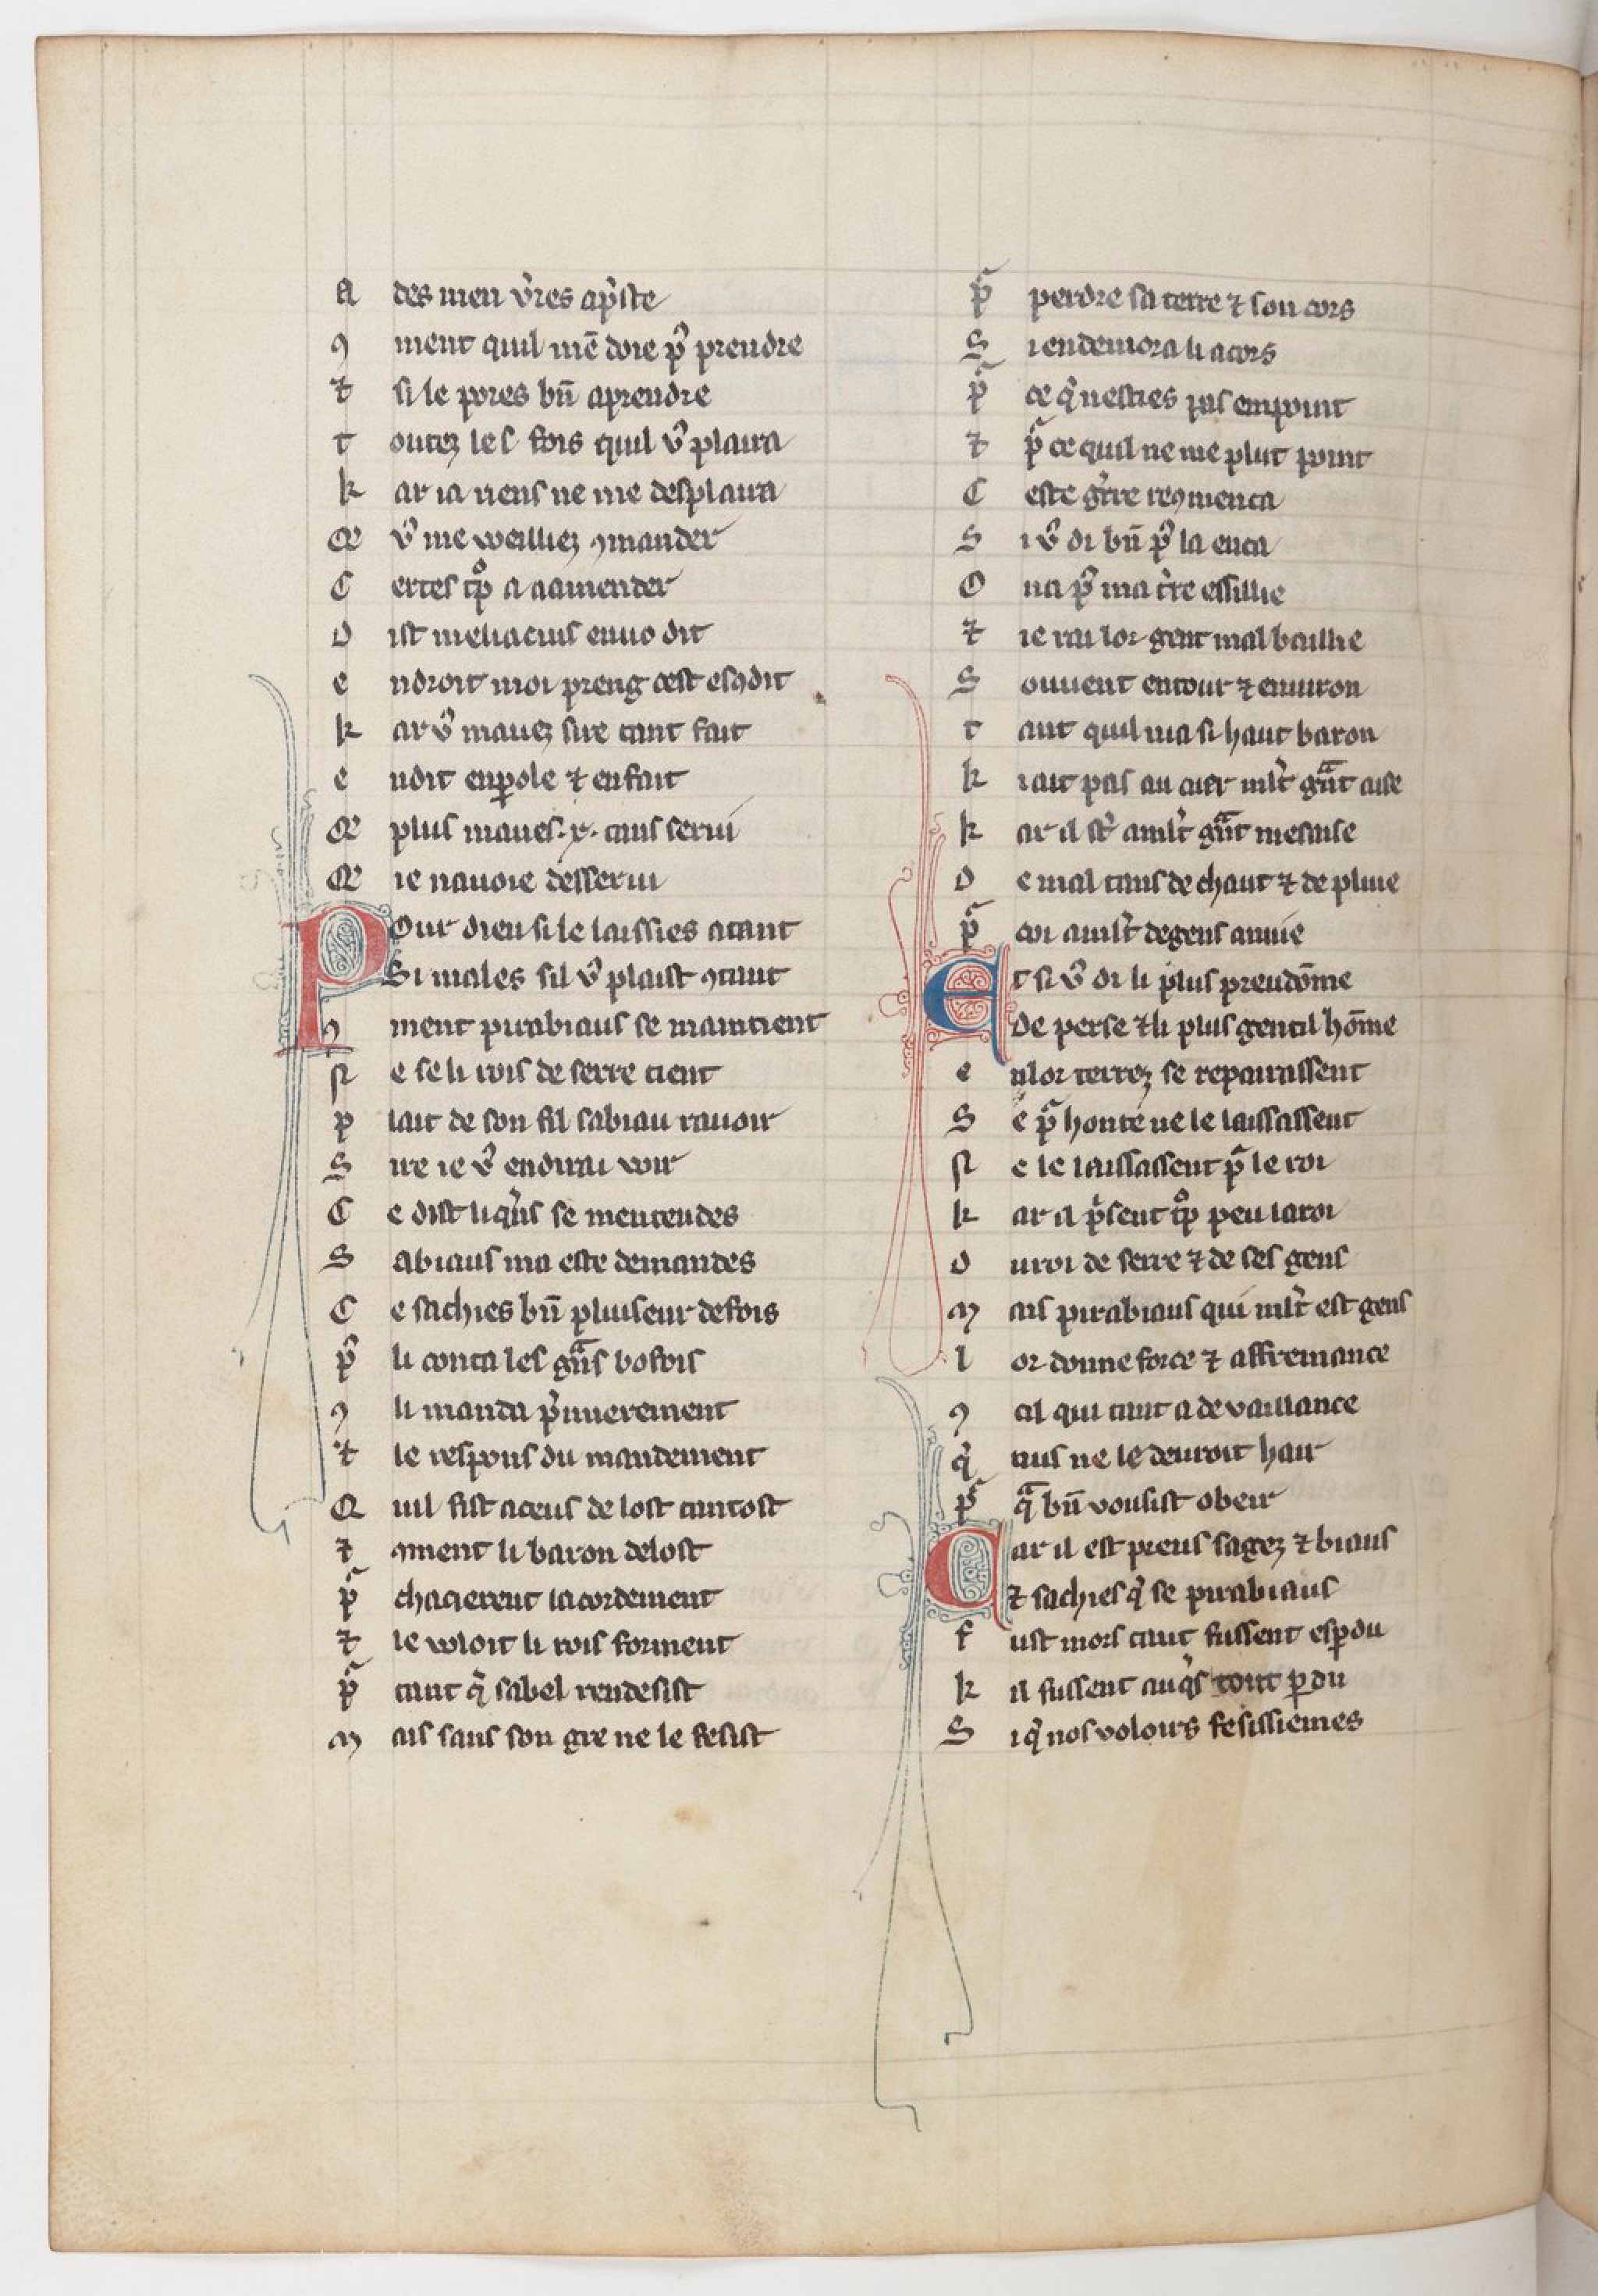 A des men ṽres ap̃ste
ꝯ ment quil mẽ doie p̃ prendre
⁊ si le pores bñ aprendre
t outez les fois quil v̾ plaira
k ar ia riens ne me desplaira
Q̃ v̾ me weilliez ꝯmander
C ertes tͦp a aamender
D ist meliacius en uo dit
e ndroit moi preng cest escͦdit
k ar v̾ mauez sire tant fait
e ndit enꝑole ⁊ enfait
Q̃ plus maues .x. tans serui
Q̃ ie nauoie desserui
Pour dieu si le laissies atant
Si males sil v̾ plaist ꝯtant
ꝯ ment pirabiaus se maintient
N e se li rois de serre tient
p lait de son fil sabiau rauoir
S ire ie v̾ endirai voir
C e dist liq̃ns se mentendes
S abiaus ma este demandes
C e sachies bñ pluiseur defois
p̾ li conta les gᷓns bofois
ꝯ li manda p̾mierement
⁊ le respons du mandement
Q uil fist aceus de lost tantost
⁊ ꝯment li baron delost
p̾ chacierent lacordement
⁊ le voloit li rois forment
p̾ tant q̃ sabel rendesist
M ais sans son gre ne le fesist
p̾ perdre sa terre ⁊ son cors
S i endemora li acors
p̾ ce q̾ nesties pas empoint
⁊ p̾ ce quil ne me plut point
C este gr̃re reꝯmenca
S i v̾ di bñ p̾ la enca
O na p̾ ma t̃re essillie
⁊ ie rai lor gent mal baillie
S ouuent entour ⁊ enuiron
t ant quil nia si haut baron
k i ait pas au cuer ml̃t gᷓnt aise
k ar il st̾ aml̃t gᷓnt mesaise
D e mal tans de chaut ⁊ de pluie
p̾ coi aml̃t degens anuie
Et si v̾ di li plus preudõme
De perse ⁊ li plus gentil hõme
e nlor terrez se repairassent
S e p̾ honte ne le laissassent
N e le laissassent p̾ le roi
k ar il p̾sent tͦp peu laroi
D u roi de serre ⁊ de ses gens
M ais pirabiaus qui ml̃t est gens
l or donne force ⁊ affremance
ꝯ cil qui tant a de vaillance
q̾ nus ne le deuroit hair
p̾ qᷓ bñ vousist obeir
Car il est preus sagez ⁊ biaus
⁊ sachies q̾ se pirabiaus
f ust mors tant fussent esꝑdu
k il fussent auq̾s tout ꝑdu
S i q̾ nos volours fesissiemes